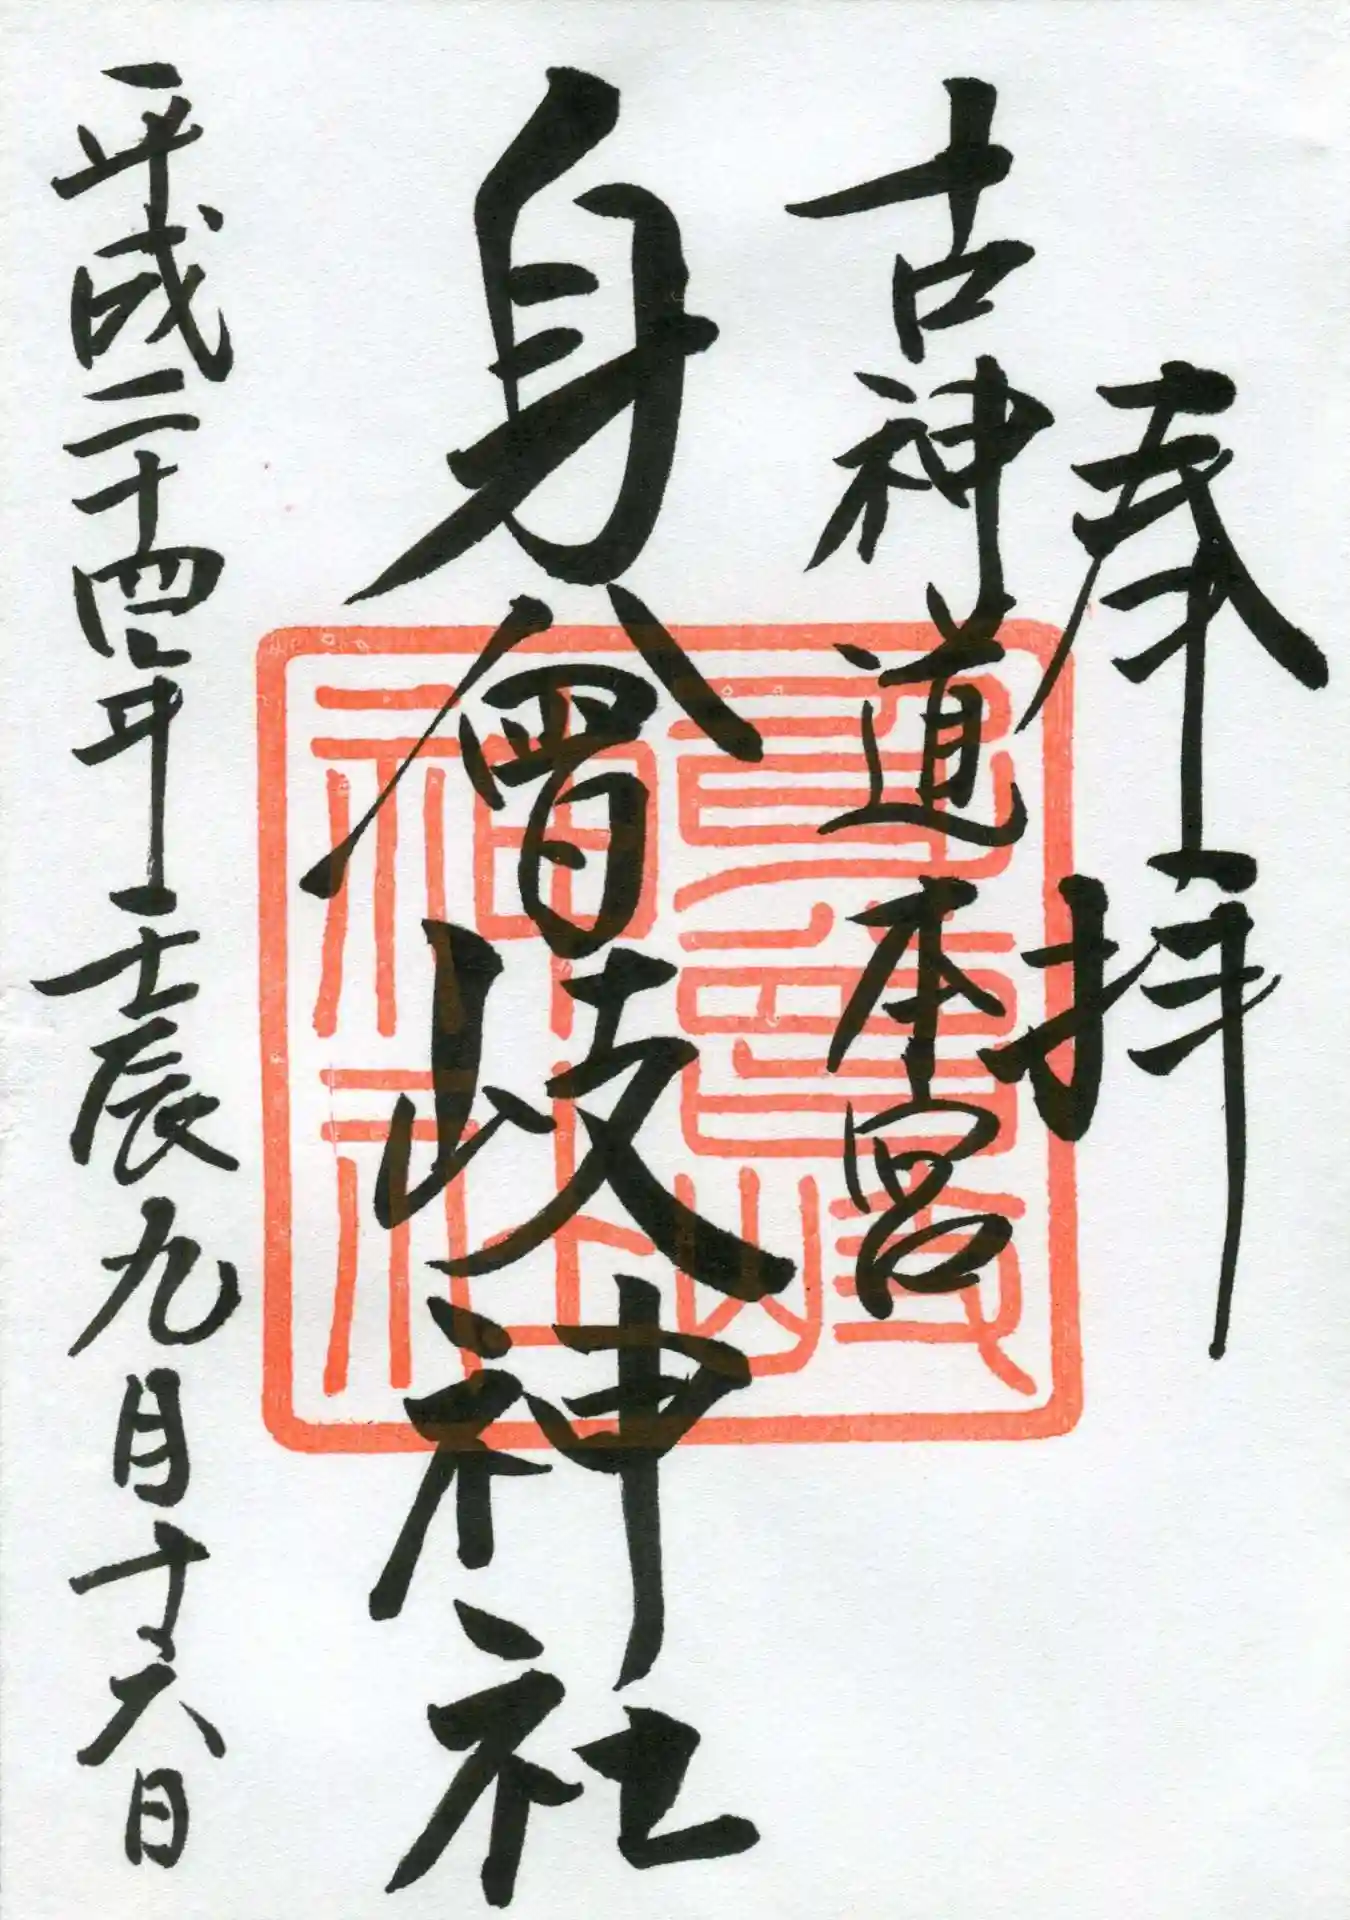 奉拝
古神道本宮
身曾岐神社
平成二十四年壬辰九月十六日
身曾岐
神社